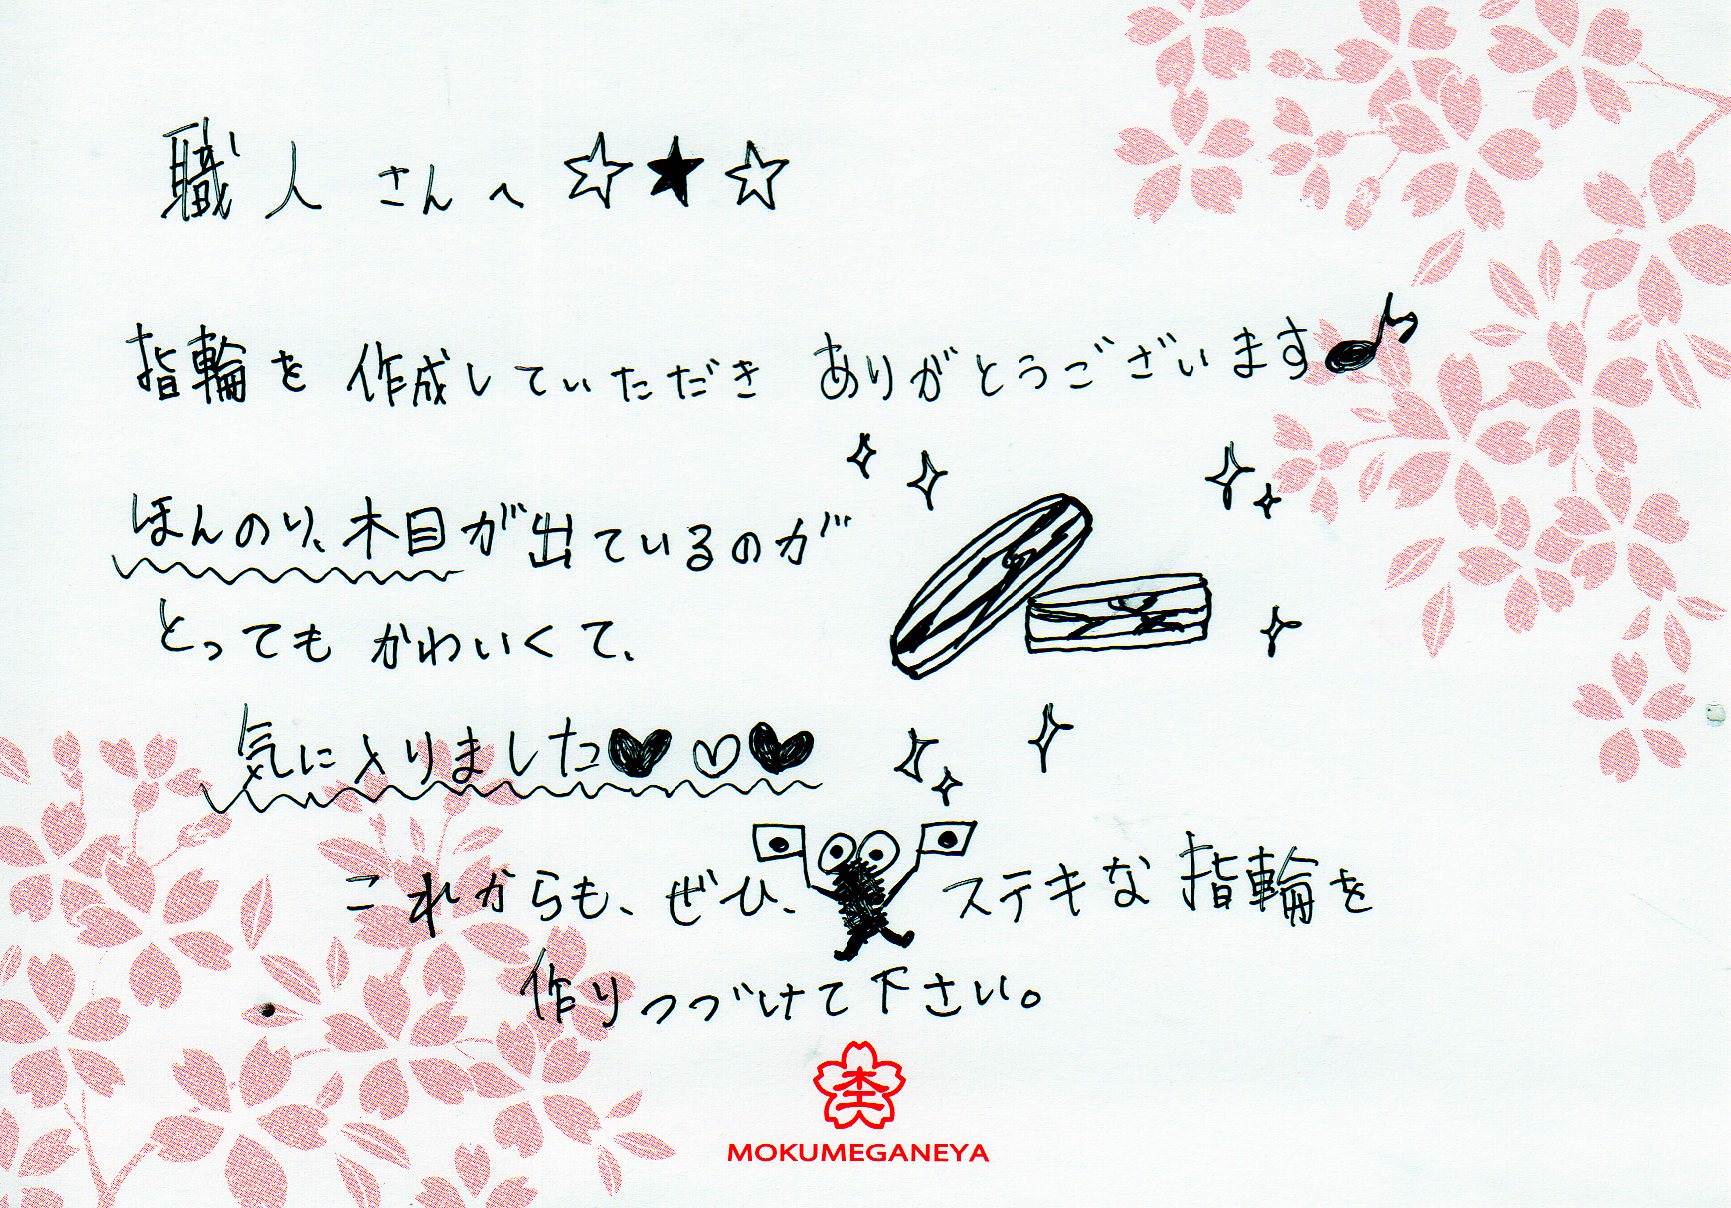 職人さんへ☆★☆
指輪を作成していただきありがとうございます♪
ほんのり、木目が出ているのが
とってもかわいくて、
気に入りました♥♡♥
これからも、ぜひ、ステキな指輪を
作りつづけて下さい。
MOKUMEGANEYA